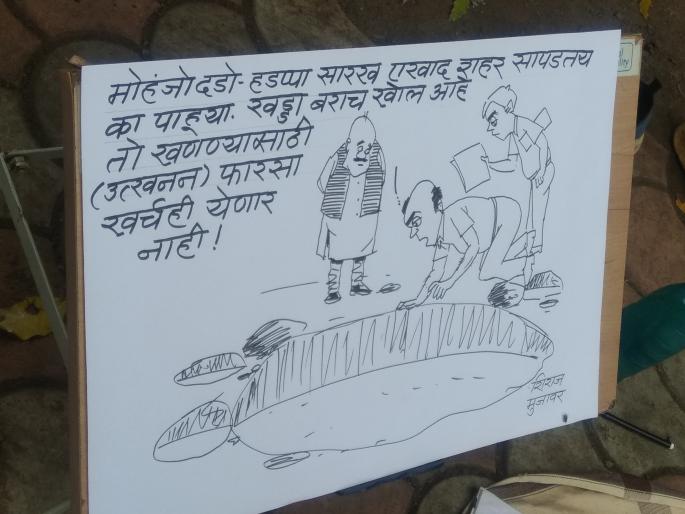 मोहंजोदडो- हडप्पा सारख एखाद शहर सापडतय
का पाहूया. खड्डा बराच खोल आहे
तो खणण्यासाठी
(उत्खनन) फारसा
खर्चही येणार
नाही!
शिराज
मुजावर